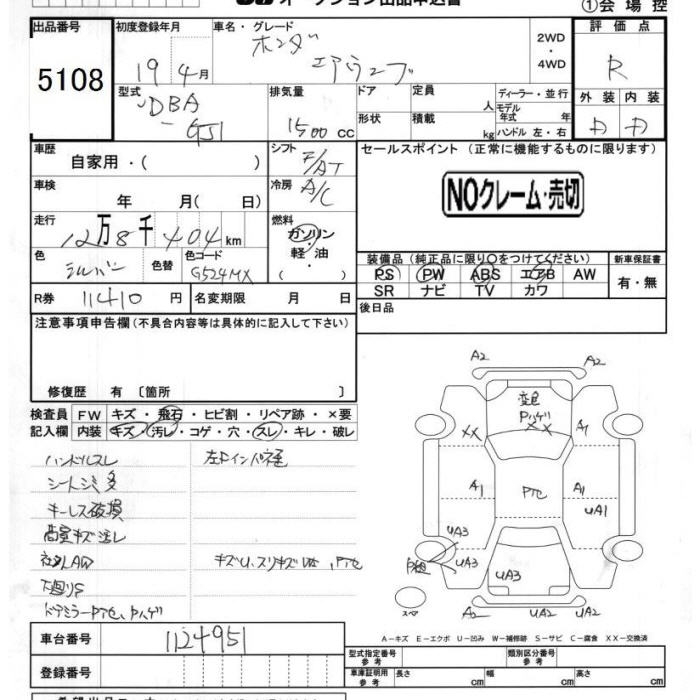 オークション出品申込書
①会場控
出品番号
5108
初度登録年月
19年 4月
車名・グレード
ホンダ
エアウェーブ
2WD
・
4WD
評価点
R
型式
DBA
-GJ1
排気量
1500 cc
ドア
形状
定員
人
積載
kg
ディーラー・並行
モデル年式 年
ハンドル 左・右
外装 内装
D D
車歴
自家用・( )
シフト
F/AT
車検
年 月( 日)
冷房
A/C
走行
12万8千404km
燃料
ガソリン
・
軽油
・
( )
色
シルバー
色替
色コード
G524MX
R券 11410 円
名変期限 月 日
セールスポイント (正常に機能するものに限ります)
NOクレーム・売切
装備品(純正品に限り○をつけてください)
PS PW ABS エアB AW
SR ナビ TV カワ
新車保証書
有・無
後日品
注意事項申告欄(不具合内容等は具体的に記入して下さい)
修復歴 有 〔箇所 〕
検査員記入欄
FW キズ・飛石・ヒビ割・リペア跡・×要
内装 キズ・汚レ・コゲ・穴・スレ・キレ・破レ
ハンドルスレ
シートシミ多
キーレス破損
荷室キズ汚レ
下廻りS
ドアミラーPTセ、Pハゲ
A2 A2
変色
Pハゲ
XX XX
A1
A1 PTセ A1
UA1
UA3
UA3
UA3
UA3
スペ
A2 UA2 UA2
A-キズ E-エクボ U-凹み W-補修跡 S-サビ C-腐食 XX-交換済
車台番号
1124951
登録番号
型式指定番号
参考
類別区分番号
参考
車庫証明用
参考
長さ cm
幅 cm
高さ cm